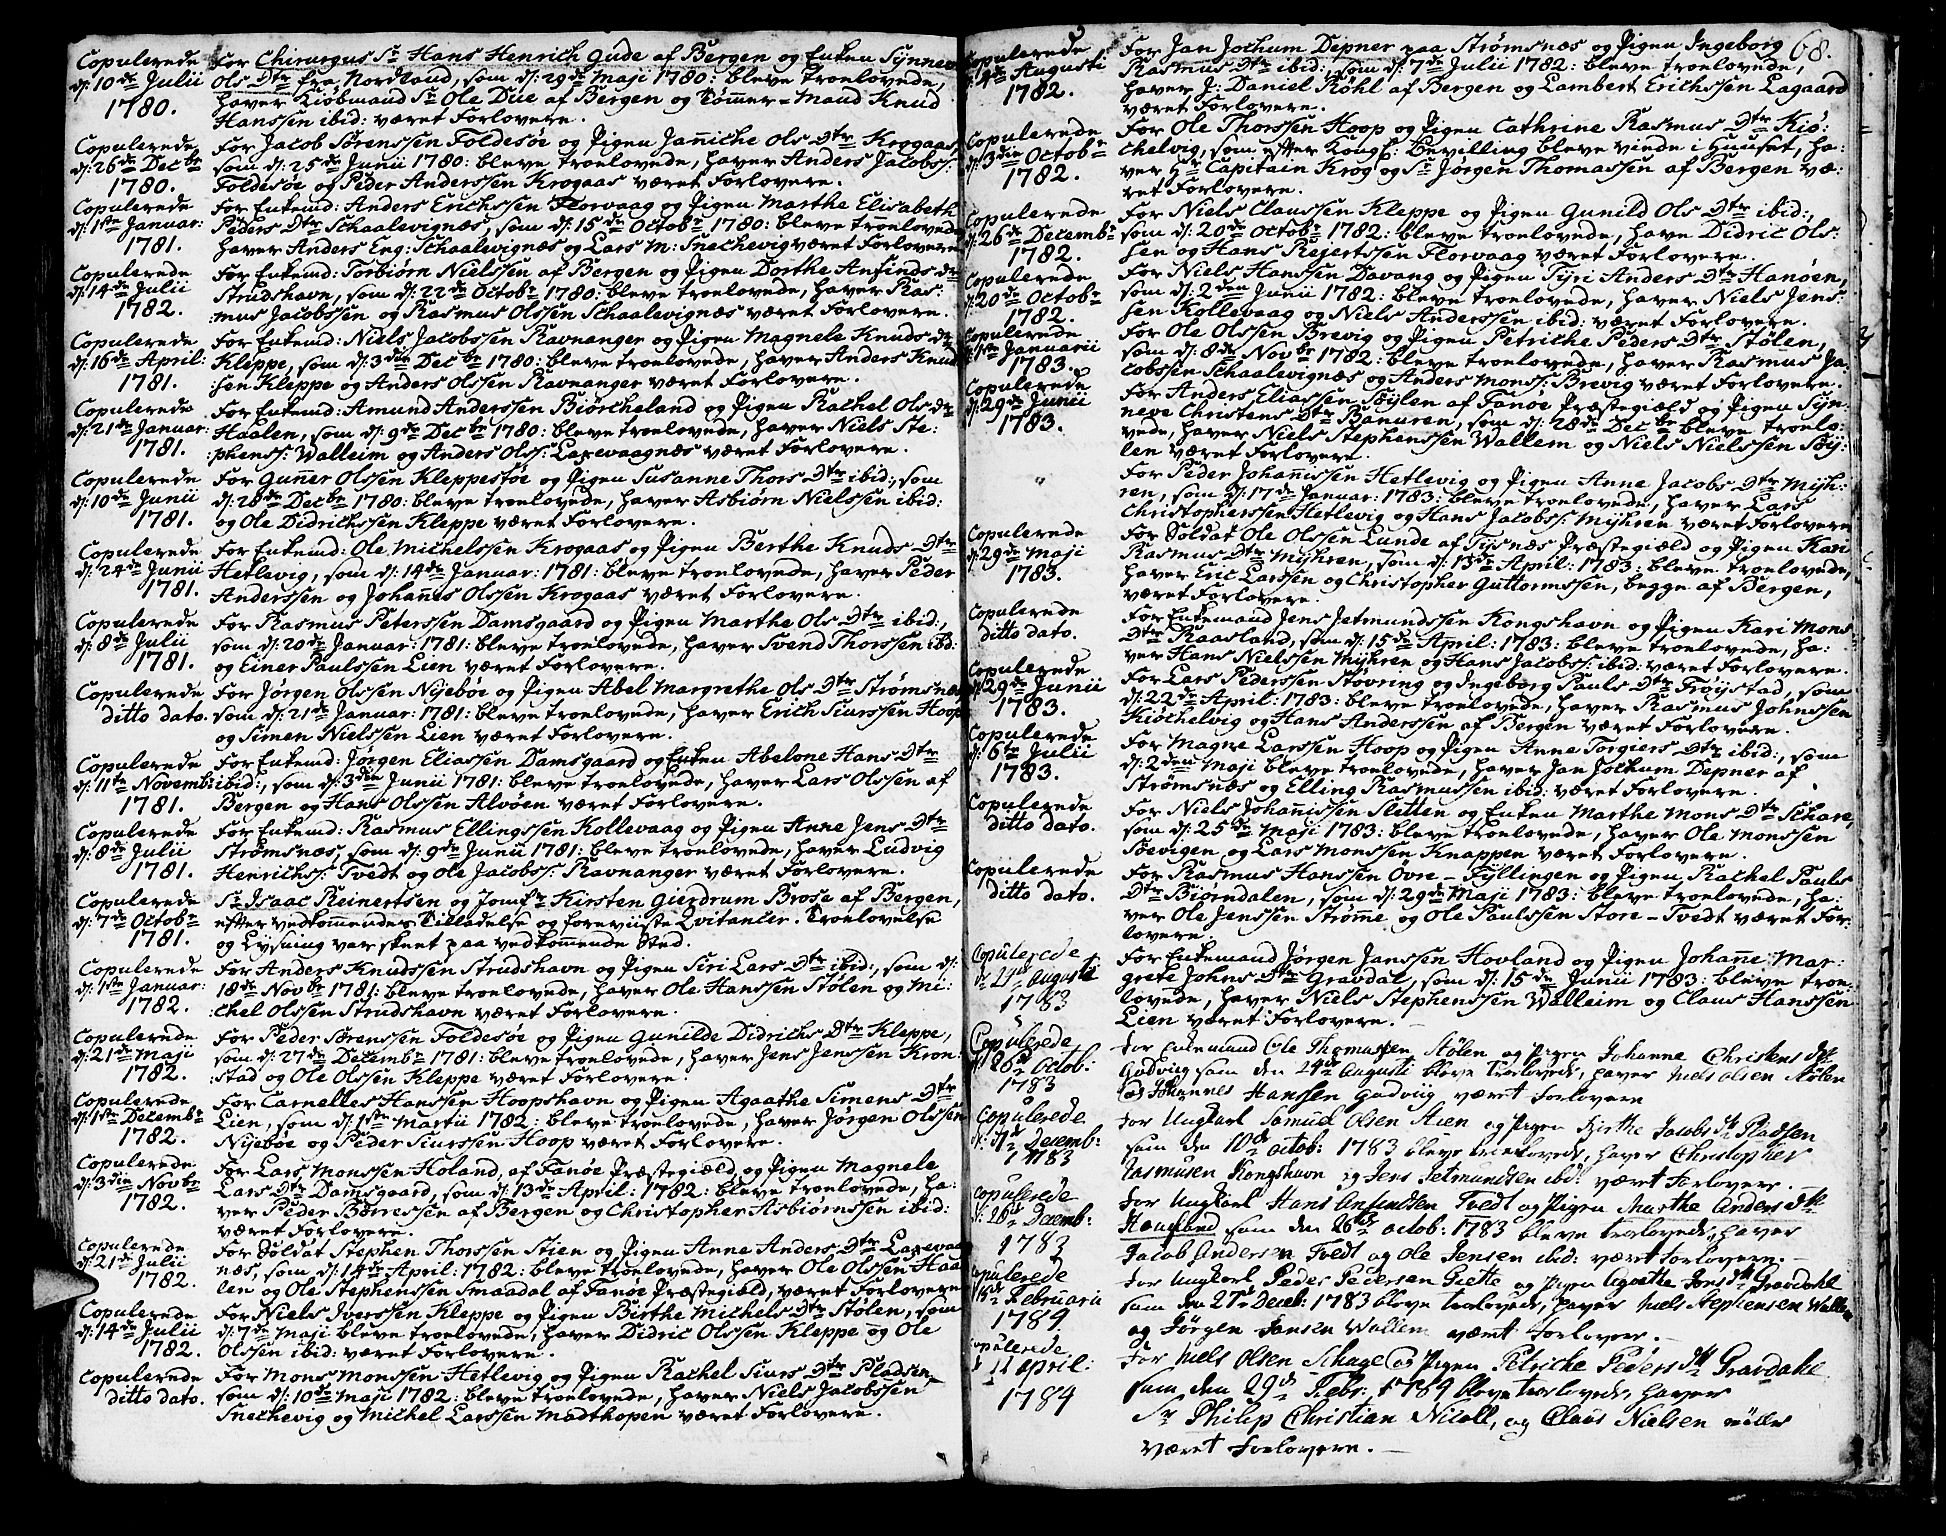 Copulerede For Chirurgus Sr Hans Henrich Gude af Bergen og Enken Synneve
d: 10de Julii Ols Dtr fra Nordland, som d: 29de Maji 1780: bleve troelovede,
1780. haver Kiöbmand Sr Ole Due af Bergen og Tömmer-Mand Knud
Hanssen ibid: været Forlovere.
Copulerede For Jacob Sørenssen Foldesøe og Pigen Janniche Ols Dtr Krogaas,
d: 26de Decbr som d: 25de Junii 1780: bleve troelovede, haver Anders Jacobss:
1780. Foldesøe og Peder Anderssen Krogaas været Forlovere.
Copulerede For Enkemd: Anders Erichssen Florvaag og Pigen Marthe Elisabeth
d: 1ste Januar: Peders Dtr Schaalevignæs, som d: 15de Octobr 1780: bleve troelovede
1781. haver Anders Eng: Schaalevignæs og Lars M: Snechevig været Forlovere
Copulerede For Enkemd: Torbiørn Nielssen af Bergen og Pigen Dorthe Anfinds dr
d: 14de Julii Strudshavn, som d: 22de Octobr 1780: bleve troelovede, haver Ras:
1782. :mus Jacobssen og Rasmus Olssen Schaalevignæs været Forlovere.
Copulerede For Enkemd: Niels Jacobssen Ravnanger og Pigen Magnele Knuds dr
d: 16de April: Kleppe, som d: 3die Decbr 1780: bleve troelovede, haver Anders Knud
1781. :sen Kleppe og Anders Olssen Ravnanger været Forlovere.
Copulerede For Enkemd: Amund Anderssen Biörcheland og Pigen Rachel Ols dr
d: 21de Januar: Haalen, som d: 9de Decbr 1780: bleve troelovede, haver Niels Ste:
1781. :phenss: Walleim og Anders Olss: Laxevaagnæs været Forlovere.
Copulerede For Gunner Olssen Kleppestøe og Pigen Susanne Thors Dtr ibid:, som
d: 10de Junii d: 28de Decbr 1780: bleve troelovede, haver Asbiørn Nielssen ibid:
1781. og Ole Didrichssen Kleppe været Forlovere.
Copulerede For Enkemd: Ole Michelssen Krogaas og Pigen Berthe Knuds Dtr
d: 24de Junii Hetlevig, som d: 14de Januar: 1781: bleve troelovede, haver Peder
1781. Anderssen og Johannes Olssen Krogaas været Forlovere.
Copulerede For Rasmus Peterssen Damsgaard og Pigen Marthe Ols Dtr ibid:,
d: 8de Julii som d: 20de Januar: 1781: bleve troelovede, haver Svend Thorssen ibd:
1781. og Einer Paulssen Lien været Forlovere.
Copulerede For Jørgen Olssen Nijebøe og Pigen Abel Margrethe Ols Dtr Strømsnæs
ditto dato. som d: 21de Januar: 1781: bleve troelovede, haver Erich Siurssen Hoop
og Simen Nielssen Lien været Forlovere.
Copulerede For Enkemd: Jørgen Eliassen Damsgaard og Enken Abelone Hans Dtr
d: 11te Novemb: ibid:, som d: 3die Junii 1781: bleve troelovede, haver Lars Olssen af
1781. Bergen og Hans Olssen Alvøen været Forlovere.
Copulerede For Enkemd: Rasmus Ellingssen Kollevaag og Pigen Anne Jens Dtr
d: 8de Julii Strømsnæs, som d: 9de Junii 1781: bleve troelovede, haver Ludvig
1781. Henrichss: Tvedt og Ole Jacobss: Ravnanger været Forlovere.
Copulerede Sr Isaac Reinertsen og Jomfr Kirsten Gierdrum Brose af Bergen,
d: 7de Octobr efter vedkommendes Tilladelse og foreviiste Qvitancer. Troelovelse
1781. og Lysning var skeet paa vedkommende Sted.
Copulerede For Anders Knudssen Strudshavn og Pigen Siri Lars Dtr ibid:, som d:
d: 1ste Januar: 18de Novbr 1781: bleve troelovede, haver Ole Hanssen Stølen og Mi:
1782. :chel Olssen Strudshavn været Forlovere.
Copulerede For Peder Sørenssen Foldesøe og Pigen Gunilde Didrichs Dtr Kleppe,
d: 21de Maji som d: 27de Decembr 1781: bleve troelovede, haver Jens Jenssen Kron:
1782. :stad og Ole Olssen Kleppe været Forlovere.
Copulerede For Carnelles Hanssen Hoopshavn og Pigen Agaathe Simens Dtr
d: 1ste Decembr Lien, som d: 1ste Martii 1782: bleve troelovede, haver Jørgen Olssen
1782. Nijebøe og Peder Siurssen Hoop været Forlovere.
Copulerede For Lars Monssen Holand, af Fanøe Præstegiæld, og Pigen Magnele
d: 3die Novbr Lars Dtr Damsgaard, som d: 13de April: 1782: bleve troelovede, ha:
1782. ver Peder Börressen af Bergen og Christopher Asbiørnssen ibid:
været Forlovere.
Copulerede For Soldat Stephen Thorssen Stien og Pigen Anne Anders Dtr Laxevaag
d: 21de Julii næs, som d: 14de April: 1782: bleve troelovede, haver Ole Olssen Haa
1782. len og Ole Stephenssen Smaadal af Fanøe Præstegiæld, været Forlovere
Copulerede For Niels Iverssen Kleppe og Pigen Birthe Michels Dtr Stølen, som
d: 14de Julii d: 7de Maji bleve troelovede, haver Didric Olssen Kleppe og Ole
1782. Olssen ibid: været Forlovere.
Copulerede For Mons Monssen Hetlevig og Pigen Rachel Siurs Dtr Pladsen,
ditto dato. som d: 10de Maji 1782: bleve troelovede, haver Niels Jacobssen
Snechevig og Michel Larssen Madthopen været Forlovere.
68.
Copulerede For Jan Jochum Depner paa Strømsnæs og Pigen Ingeborg
d: 4de Augusti Rasmus Dtr ibid:, som d: 7de Julii 1782: bleve troelovede,
1782. haver J: Daniel Röhl af Bergen og Lambert Erichssen Lagaard
været Forlovere.
Copulerede For Ole Thorssen Hoop og Pigen Cathrine Rasmus Dtr Kiö:
d: 3die Octobr chelvig, som efter Kongl: Bevilling bleve viede i Huuset, ha:
1782. ver Hr Capitain Krog og Sr Jørgen Thomassen af Bergen væ:
ret Forlovere.
Copulerede For Niels Claussen Kleppe og Pigen Gunild Ols Dtr ibid:,
d: 26de Decembr som d: 20de Octobr 1782: bleve troelovede, have Didric Ols:
1782. sen og Hans Reiertssen Florvaag været Forlovere.
Copulerede For Niels Hanssen Davang og Pigen Tyri Anders Dtr Hanøen,
d: 20de Octobr som d: 2den Junii 1782: bleve troelovede, haver Niels Jens:
1782. sen Kollevaag og Niels Anderssen ibid: været Forlovere.
Copulerede For Ole Olssen Brevig og Pigen Petriche Peders Dtr Stølen,
d: 1ste Januarii som d: 8de Novbr 1782: bleve troelovede, haver Rasmus Ja:
1783. cobssen Schaalevignæs og Anders Monss: Brevig været Forlovere.
Copulerede For Anders Eliassen Søylen af Fanøe Præstegiæld og Pigen Syn:
d: 29de Junii neve Christens Dtr Ranuren, som d: 28de Decbr bleve troelo:
1783. vede, haver Niels Stephenssen Wallem og Niels Nielssen Søy:
len været Forlovere.
For Peder Johannissen Hetlevig og Pigen Anne Jacobs Dtr Myh:
ren, som d: 17de Januar: 1783: bleve troelovede, haver Lars
Christopherssen Hetlevig og Hans Jacobss: Myhren været Forlovere
Copulerede For Soldat Ole Olssen Lunde af Tysnæs Præstegiæld og Pigen Kari
d: 29de Maji Rasmus Dtr Myhren, som d: 13de April: 1783: bleve troelovede,
1783. haver Eric Larssen og Christopher Guttormssen, begge af Bergen,
været Forlovere.
Copulerede For Enkemand Jens Jetmundssen Kongshavn og Pigen Kari Mons
ditto dato. Dtr Raasland, som d: 15de April: 1783: bleve troelovede, ha:
ver Hans Nielssen Myhren og Hans Jacobss: ibid: været Forlovere.
Copulerede For Lars Pederssen Stovring og Ingeborg Pauls Dtr Frøystad, som
d: 29de Junii d: 22de April: 1783: bleve troelovede, haver Rasmus Johnssen
1783. Kiöchelvig og Hans Anderssen af Bergen været Forlovere.
Copulerede For Magne Larssen Hoop og Pigen Anne Torgiers Dtr ibid:, som
d: 6te Julii d: 2den Maji bleve troelovede, haver Jan Jochum Depner af
1783. Strømsnæs og Elling Rasmussen ibid: været Forlovere.
Copulerede For Niels Johannissen Sletten og Enken Marthe Mons Dtr Schare,
ditto dato. som d: 25de Maji 1783: bleve troelovede, haver Ole Monssen
Søevigen og Lars Monssen Knappen været Forlovere.
Copulerede For Rasmus Hanssen Øvre-Fyllingen og Pigen Rachel Pauls
ditto dato. Dtr Biørndalen, som d: 29de Maji 1783: bleve troelovede, ha:
ver Ole Jenssen Strømme og Ole Paulssen Store-Tvedt været For:
lovere.
Copulerede For Enkemand Jørgen Janssen Hovland og Pigen Johanne Mar:
Augusti grete Johns Dtr Gravdal, som d: 15de Junii 1783: bleve troe:
1783 lovede, haver Niels Stephenssen Walleim og Claus Hanssen
Lien været Forlovere.
Copulerede For Enkemand Ole Thomassen Stølen og Pigen Johanne Christens Dtr
d: 28de Octob: Gudvig som den 24de Augusti bleve troelovede, haver Niels Olsen Stølen
1783 og Johannes Hanssen Gudviig været Forlovere
Copulerede For Ungkarl Samuel Olsen Lien og Pigen Birthe Jacobs Dtr Pladsen
d: 7de Decemb: som den 10de Octob: 1783 bleve troelovede, haver Christopher
1783 Rasmusen Kongshavn og Jens Jetmundsen ibid: været Forlovere.
Copulerede For Ungkarl Hans Anfindsen Tvedt og Pigen Marthe Anders Dtr
d: 26de Decemb: Haugland som den 26de Octob: 1783 bleve troelovede, haver
1783 Jacob Andersen Tvedt og Ole Jensen ibid: været Forlovere.
Copulerede For Ungkarl Peder Pedersen Giette og Pigen Agnethe Jons Dtr Gravdahl
Februarii som den 27de Deceb: 1783 bleve troelovede, haver Niels Stephensen Wallem
1784 og Jörgen Jansen Wallem været Forlovere.
Copulerede For Niels Olsen Schage og Pigen Petriche Peders Dtr Gravdahl
11 April: som den 29de Febr: 1784 bleve troelovede, haver
1784 Sr Philip Christian Nicoll, og Claus Nielsen
været Forlovere.